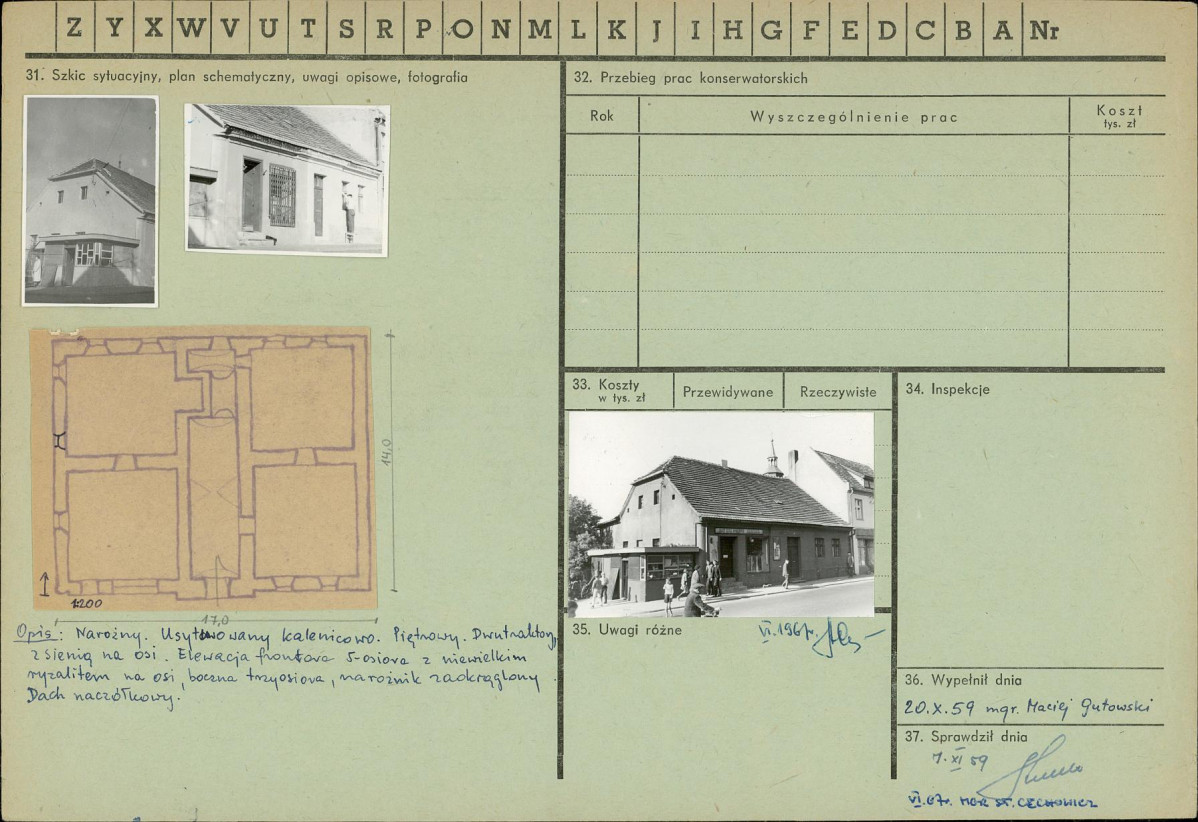 Z Y X W V U T S R P O N M L K J I H G F E D C B A Nr
31. Szkic sytuacyjny, plan schematyczny, uwagi opisowe, fotografia
14,0
1:200
17,0
Opis: Narożny. Usytuowany kalenicowo. Piętrowy. Dwutraktowy,
z sienią na osi. Elewacja frontowa 5-osiowa z niewielkim
ryzalitem na osi, boczna trzyosiowa, narożnik zaokrąglony.
Dach naczółkowy.
32. Przebieg prac konserwatorskich
Rok
Wyszczególnienie prac
Koszt
tys. zł
33. Koszty
w tys. zł
Przewidywane
Rzeczywiste
34. Inspekcje
35. Uwagi różne
VI.1967r.
36. Wypełnił dnia
20.X.59 mgr. Maciej Gutowski
37. Sprawdził dnia
7.XI 59
VI.67r. MGR ST. CECHOWICZ